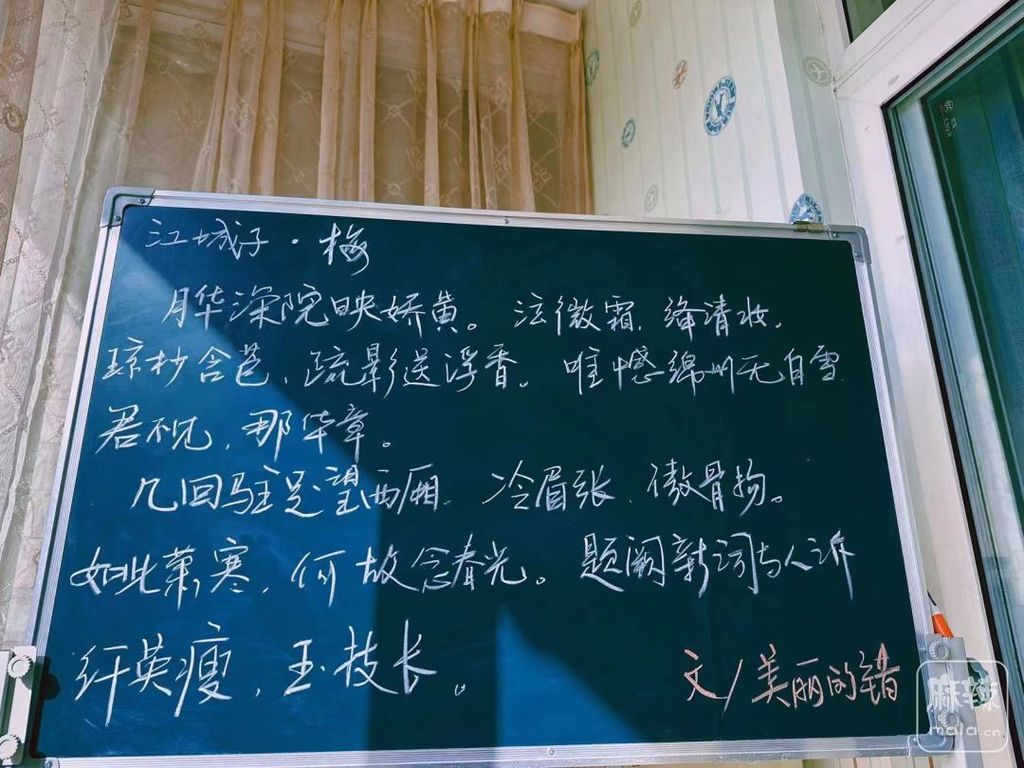 江城子·梅
月华深院映娇黄。泫微霜,绛清妆,
琼杪含苞,疏影送浮香。唯憾绵州无白雪
君不见,那华章。
几回驻足望西厢,冷眉张,傲骨扬。
如此萧寒,何故念春光。题阙新词与人诉
纤英瘦,玉枝长。
文/美丽的错
麻辣
mala.cn